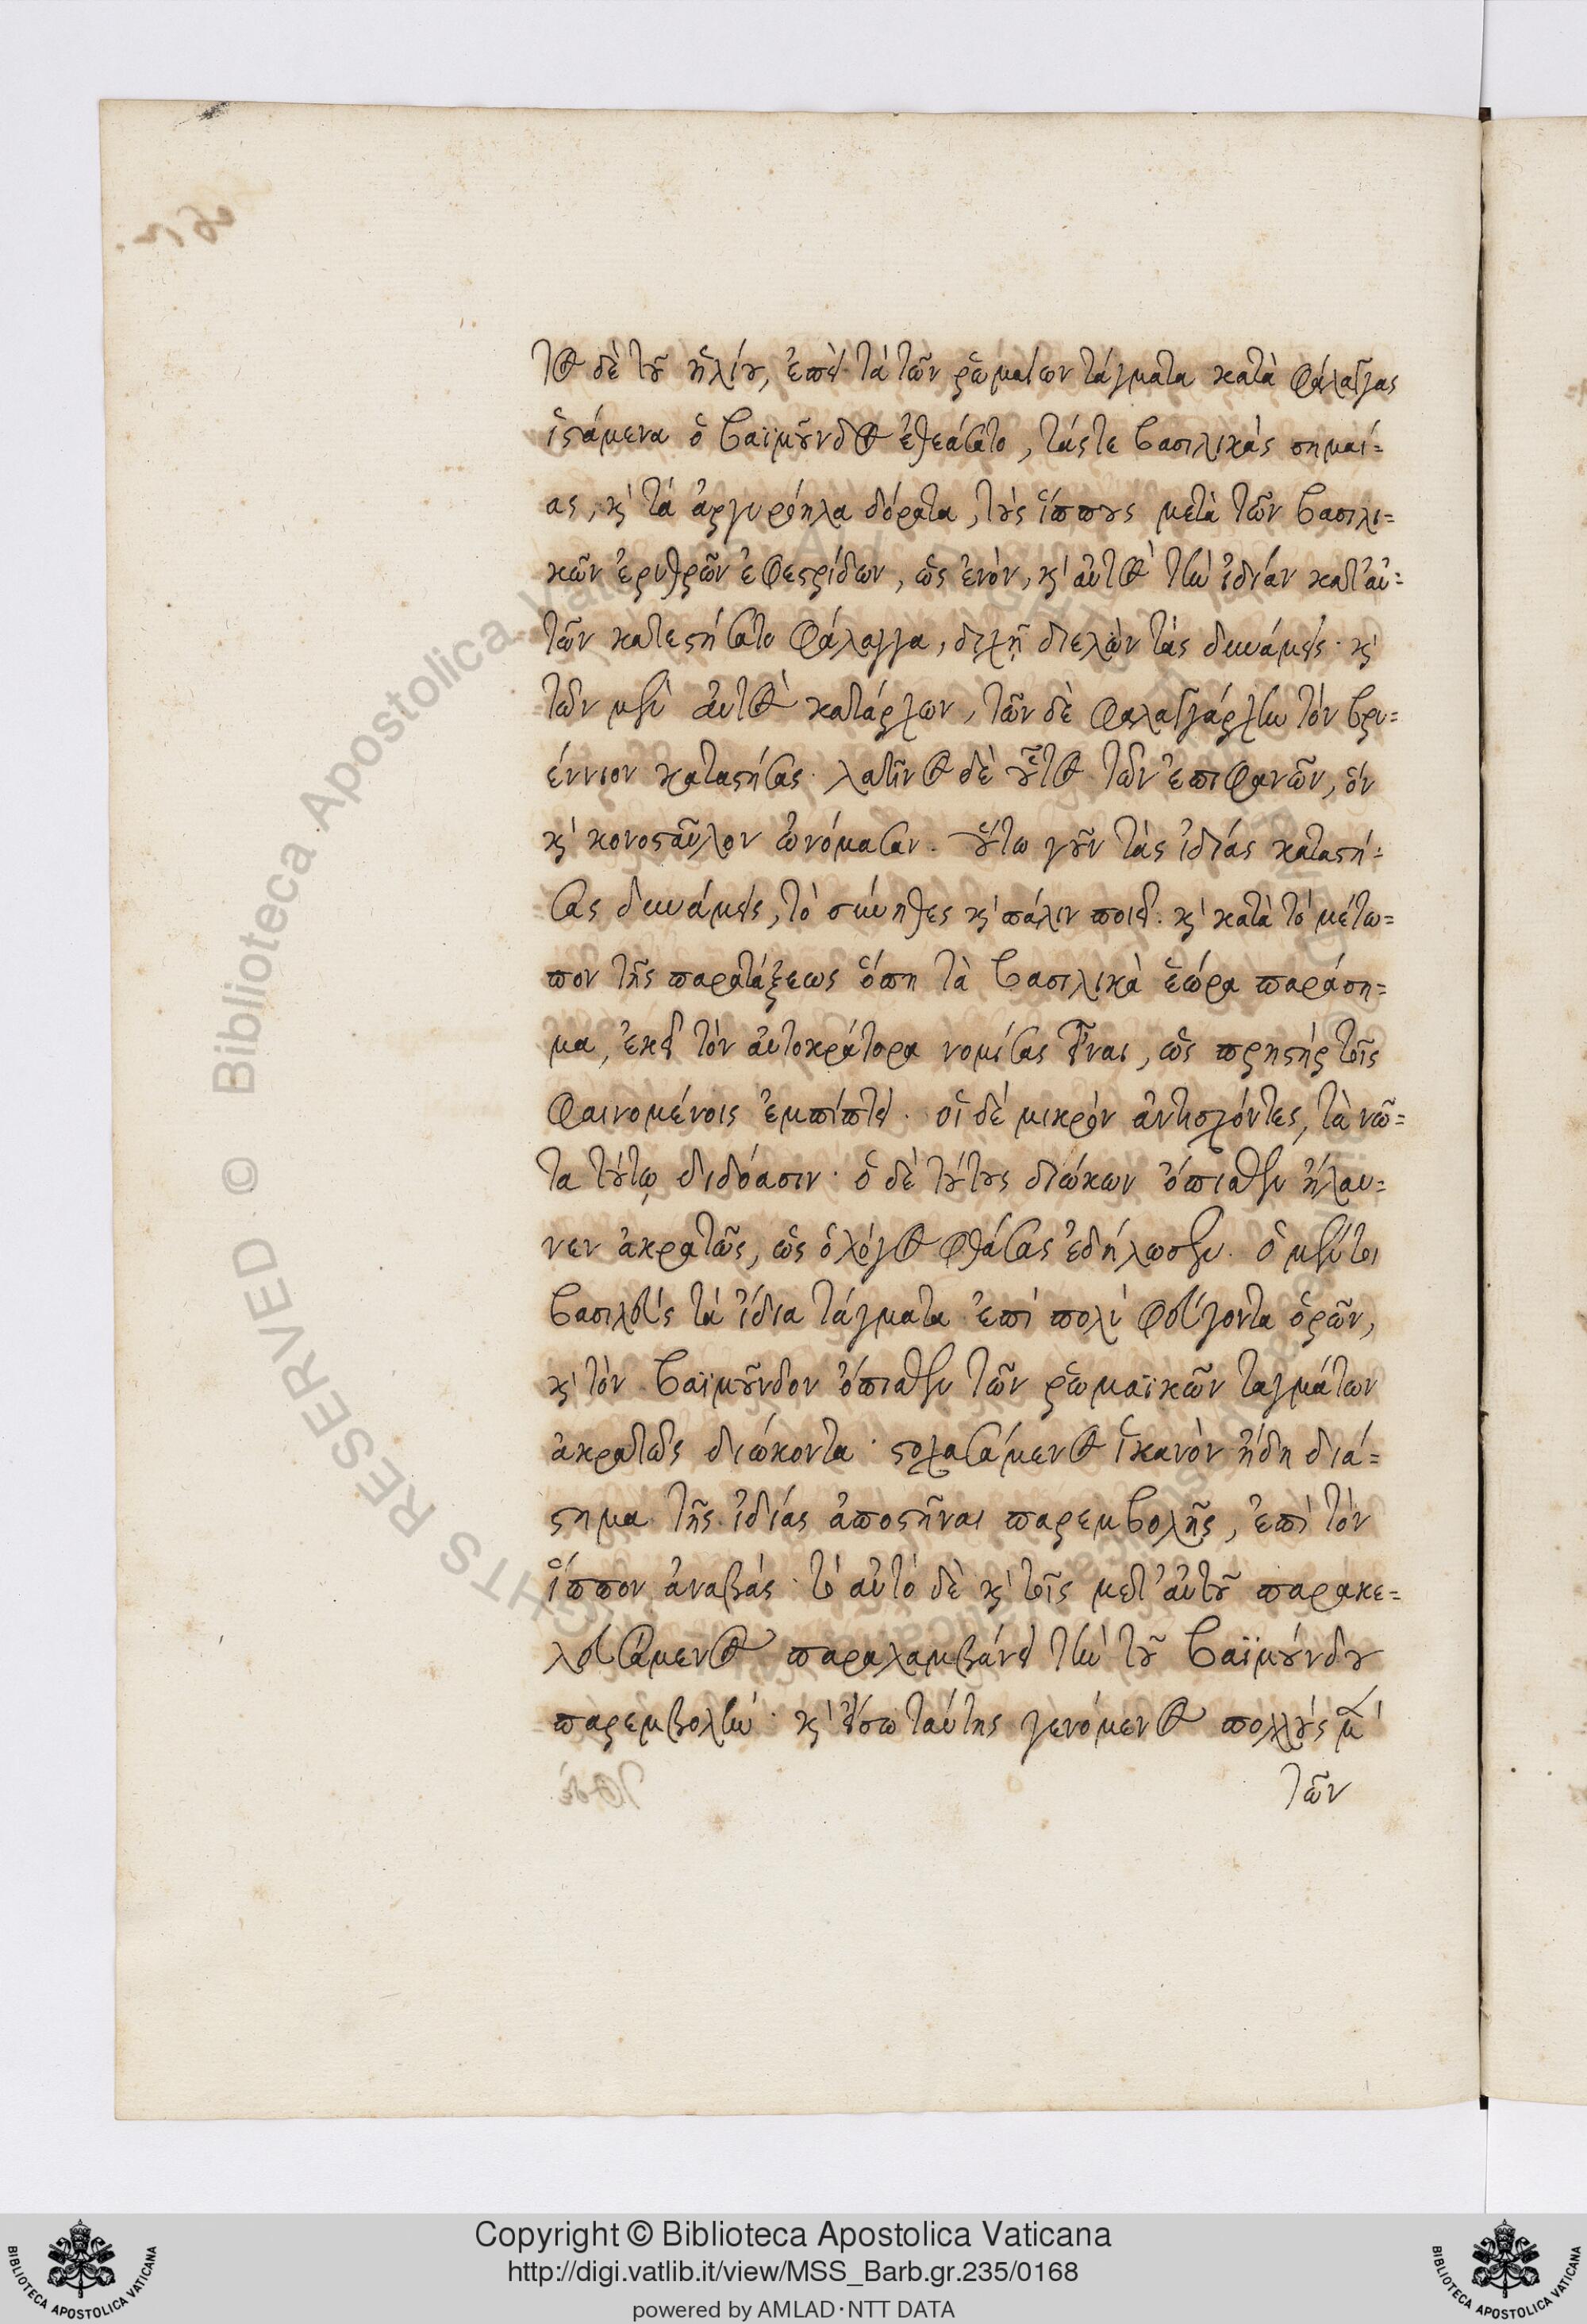 τος δὲ τοῦ ἡλίου, ἐπεὶ τὰ τῶν ῥωμαίων τάγματα κατὰ φάλαγγας
ἱστάμενα ὁ βαϊμοῦνδος ἐθεάσατο, τάς τε βασιλικὰς σημαί=
ας, καὶ τὰ ἀργυρόηλα δόρατα, τοὺς ἵππους μετὰ τῶν βασιλι=
κῶν ἐρυθρῶν ἐφεστρίδων, ὡς ἐνὸν, καὶ αὐτὸς τὴν ἰδίαν κατ' αὐ=
τῶν κατεστήσατο φάλαγγα, διχῇ διελὼν τὰς δυνάμεις· καὶ
τῶν μὲν αὐτὸς κατάρχων, τῶν δὲ φαλαγγάρχην τὸν βρυ=
έννιον καταστήσας. λατῖνος δὲ οὗτος τῶν ἐπιφανῶν, ὃν
καὶ κονοσταῦλον ὠνόμασαν. οὕτω γοῦν τὰς ἰδίας καταστή=
σας δυνάμεις, τὸ σύνηθες καὶ πάλιν ποιεῖ. καὶ κατὰ τὸ μέτω=
πον τῆς παρατάξεως ὅπη τὰ βασιλικὰ ἑώρα παράση=
μα, ἐκεῖ τὸν αὐτοκράτορα νομίσας εἶναι, ὡς πρηστὴρ τοῖς
φαινομένοις ἐμπίπτει. οἱ δὲ μικρὸν ἀντισχόντες, τὰ νῶ=
τα τούτῳ διδόασιν· ὁ δὲ τούτους διώκων ὄπισθεν ἤλαυ=
νεν ἀκρατῶς, ὡς ὁ λόγος φθάσας ἐδήλωσεν. ὁ μέντοι
βασιλεὺς τὰ ἴδια τάγματα ἐπὶ πολὺ φεύγοντα ὁρῶν,
καὶ τὸν βαϊμοῦνδον ὄπισθεν τῶν ῥωμαϊκῶν ταγμάτων
ἀκρατῶς διώκοντα· στοχασάμενος ἱκανὸν ἤδη διά=
στημα τῆς ἰδίας ἀποστῆναι παρεμβολῆς, ἐπὶ τὸν
ἵππον ἀναβάς· τὸ αὐτὸ δὲ καὶ τοῖς μετ' αὐτοῦ παρακε=
λευσάμενος παραλαμβάνει τὴν τοῦ βαϊμούνδου
παρεμβολήν· καὶ εἴσω ταύτης γενόμενος πολλοὺς μὲν
τῶν